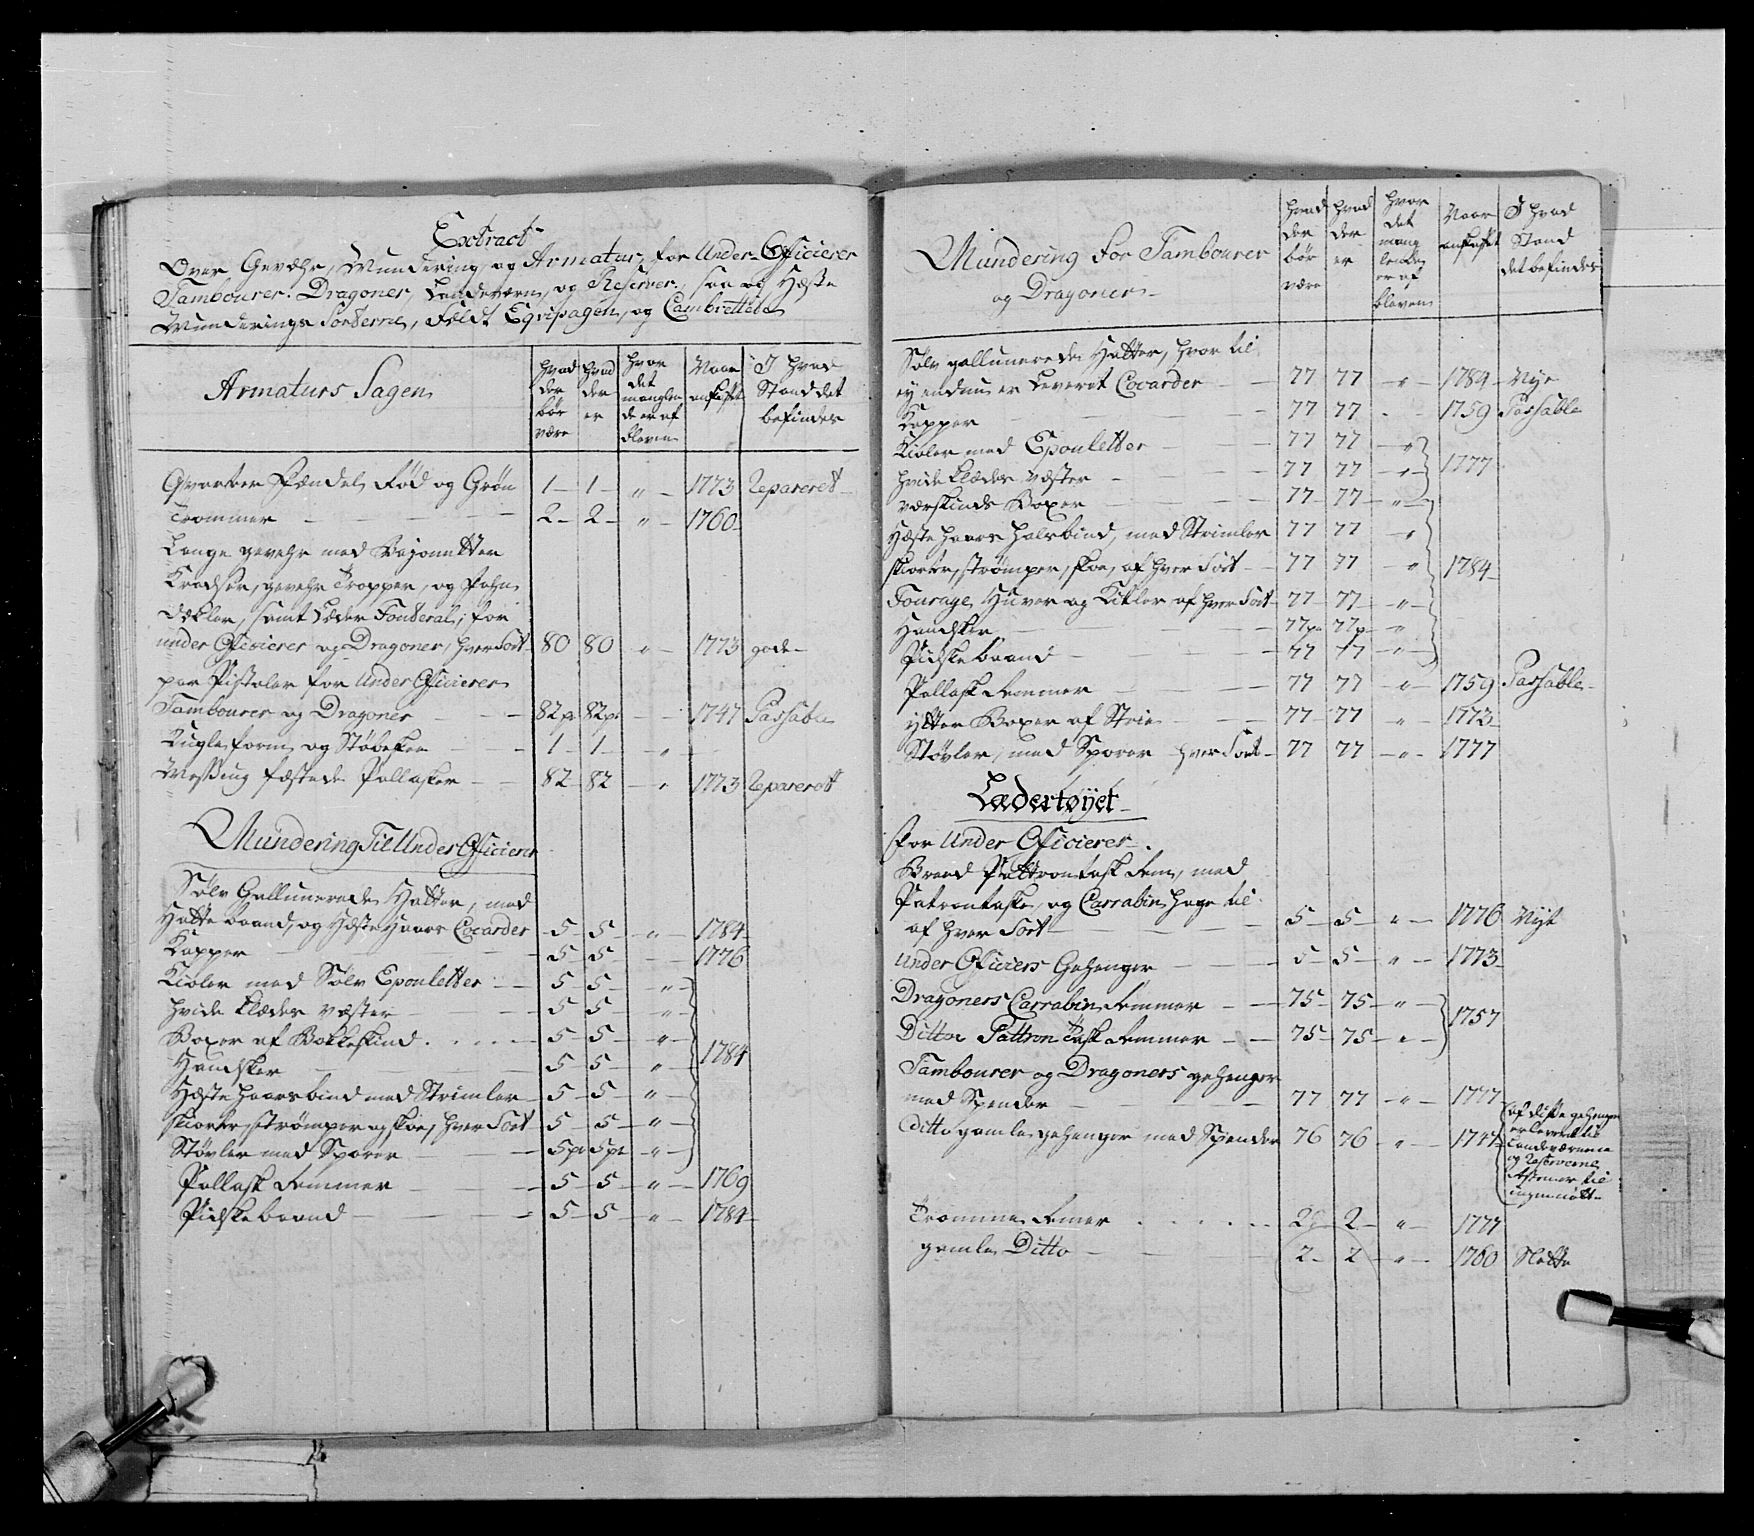 Extract
Over Gevæhr, Mundering, og Armatur, for Under Officierer
Tambourer, Dragoner, Landeværn, og Reserver, saa og Hæste
Munderings Sorterne, Feldt Eqvipagen, og
Armaturs Sagen
hvad der bør være
hvad der er
hvor det manglende er af bleven
Naar anskaffet
I hvad Stand det befindes
Qvarteer Pændel, Rød og Grøn 1 1 " 1773 Repareret
Trommer 2 2 " 1760
Lange gevehr med Bajonetter
Kradser, gevehr Propper, og
Dekler, samt Læder Fouderal, for
under Officierer og Dragoner, hver Sort 80 80 " 1773 gode
par Pistoler for Under Officierer
Tambourer og Dragoner 82pr 82pr 1747 Passable
Kugle form og Støbeskee 1 1 "
Messing fæstede Pallasker 82 82 " 1773 Repareret
Mundering Til Under Officierer
Sølv Gallunerede Hatter, med
Hatte baand, og Hæste Haars Cocarder 5 5 " 1784
Kapper 5 5 1776
Kioler med Sølv Epouletter 5 5 "
hvide Klædes Væster 5 5 "
Boxer af Bokkeskind 5 5 " 1784
Handsker 5 5 "
Hæstehaarsbind med Strimler 5 5 "
skiorter, strømper og skoe, hver Sort 5 5 "
Støvler med Sporer 5pr 5pr "
Pallask Remmer 5 5 " 1769
Pidskebaand 5 5 " 1784
Mundering For Tambourer
og Dragoner
hvad der bør være
hvad der er
hvor det manglende er af bleven
Naar anskaffet
I hvad Stand det befindes
Sølv gallunerede Hatter, hvor til
ey endnu er Leveret Cocarder 77 77 " 1784 Nye
Kapper 77 77 1759 Passable
Kioler med Epouletter 77 77 "
hvide Klædes Væster 77 77 " 1777
værskinds Boxer 77 77 "
Hæste haars halsbind, med Strimler 77 77 "
skiorter, strømper, skoe, af hver Sort 77 77 " 1784
Fourage Huver og Kitler af hver Sort 77 77 "
Handsker 77pr 77pr "
Pidskebaand 77 77 "
Pallask Remmer 77 77 " 1759 Passable
ytter Boxer af Strie 77 77 " 1773
Støvler, med Sporer hver Sort 77 77 " 1777
Lædertøyet
For Under Officierer
Breed Pattrontask Rem, med
Patrontaske, og Carrabin Hage til
af hver Sort 5 5 " 1776 Nye
Under Officiers Gehenger 5 5 " 1773
Dragoners Carrabin Remmer 75 75 "
1757
Dittoe Pattron Task Remmer 75 75 "
Tambourer og Dragoners gehenger
med Spender 77 77 " 1777
Ditto gamle gehenger med Spender 76 76 " 1747
af disse gehenger
er leveret til
Landeværnene
og Reserverne
Resten er til
ingen nøtte
Tromme Remer 2 2 " 1777
gamle Ditto 2 2 " 1760 Slette